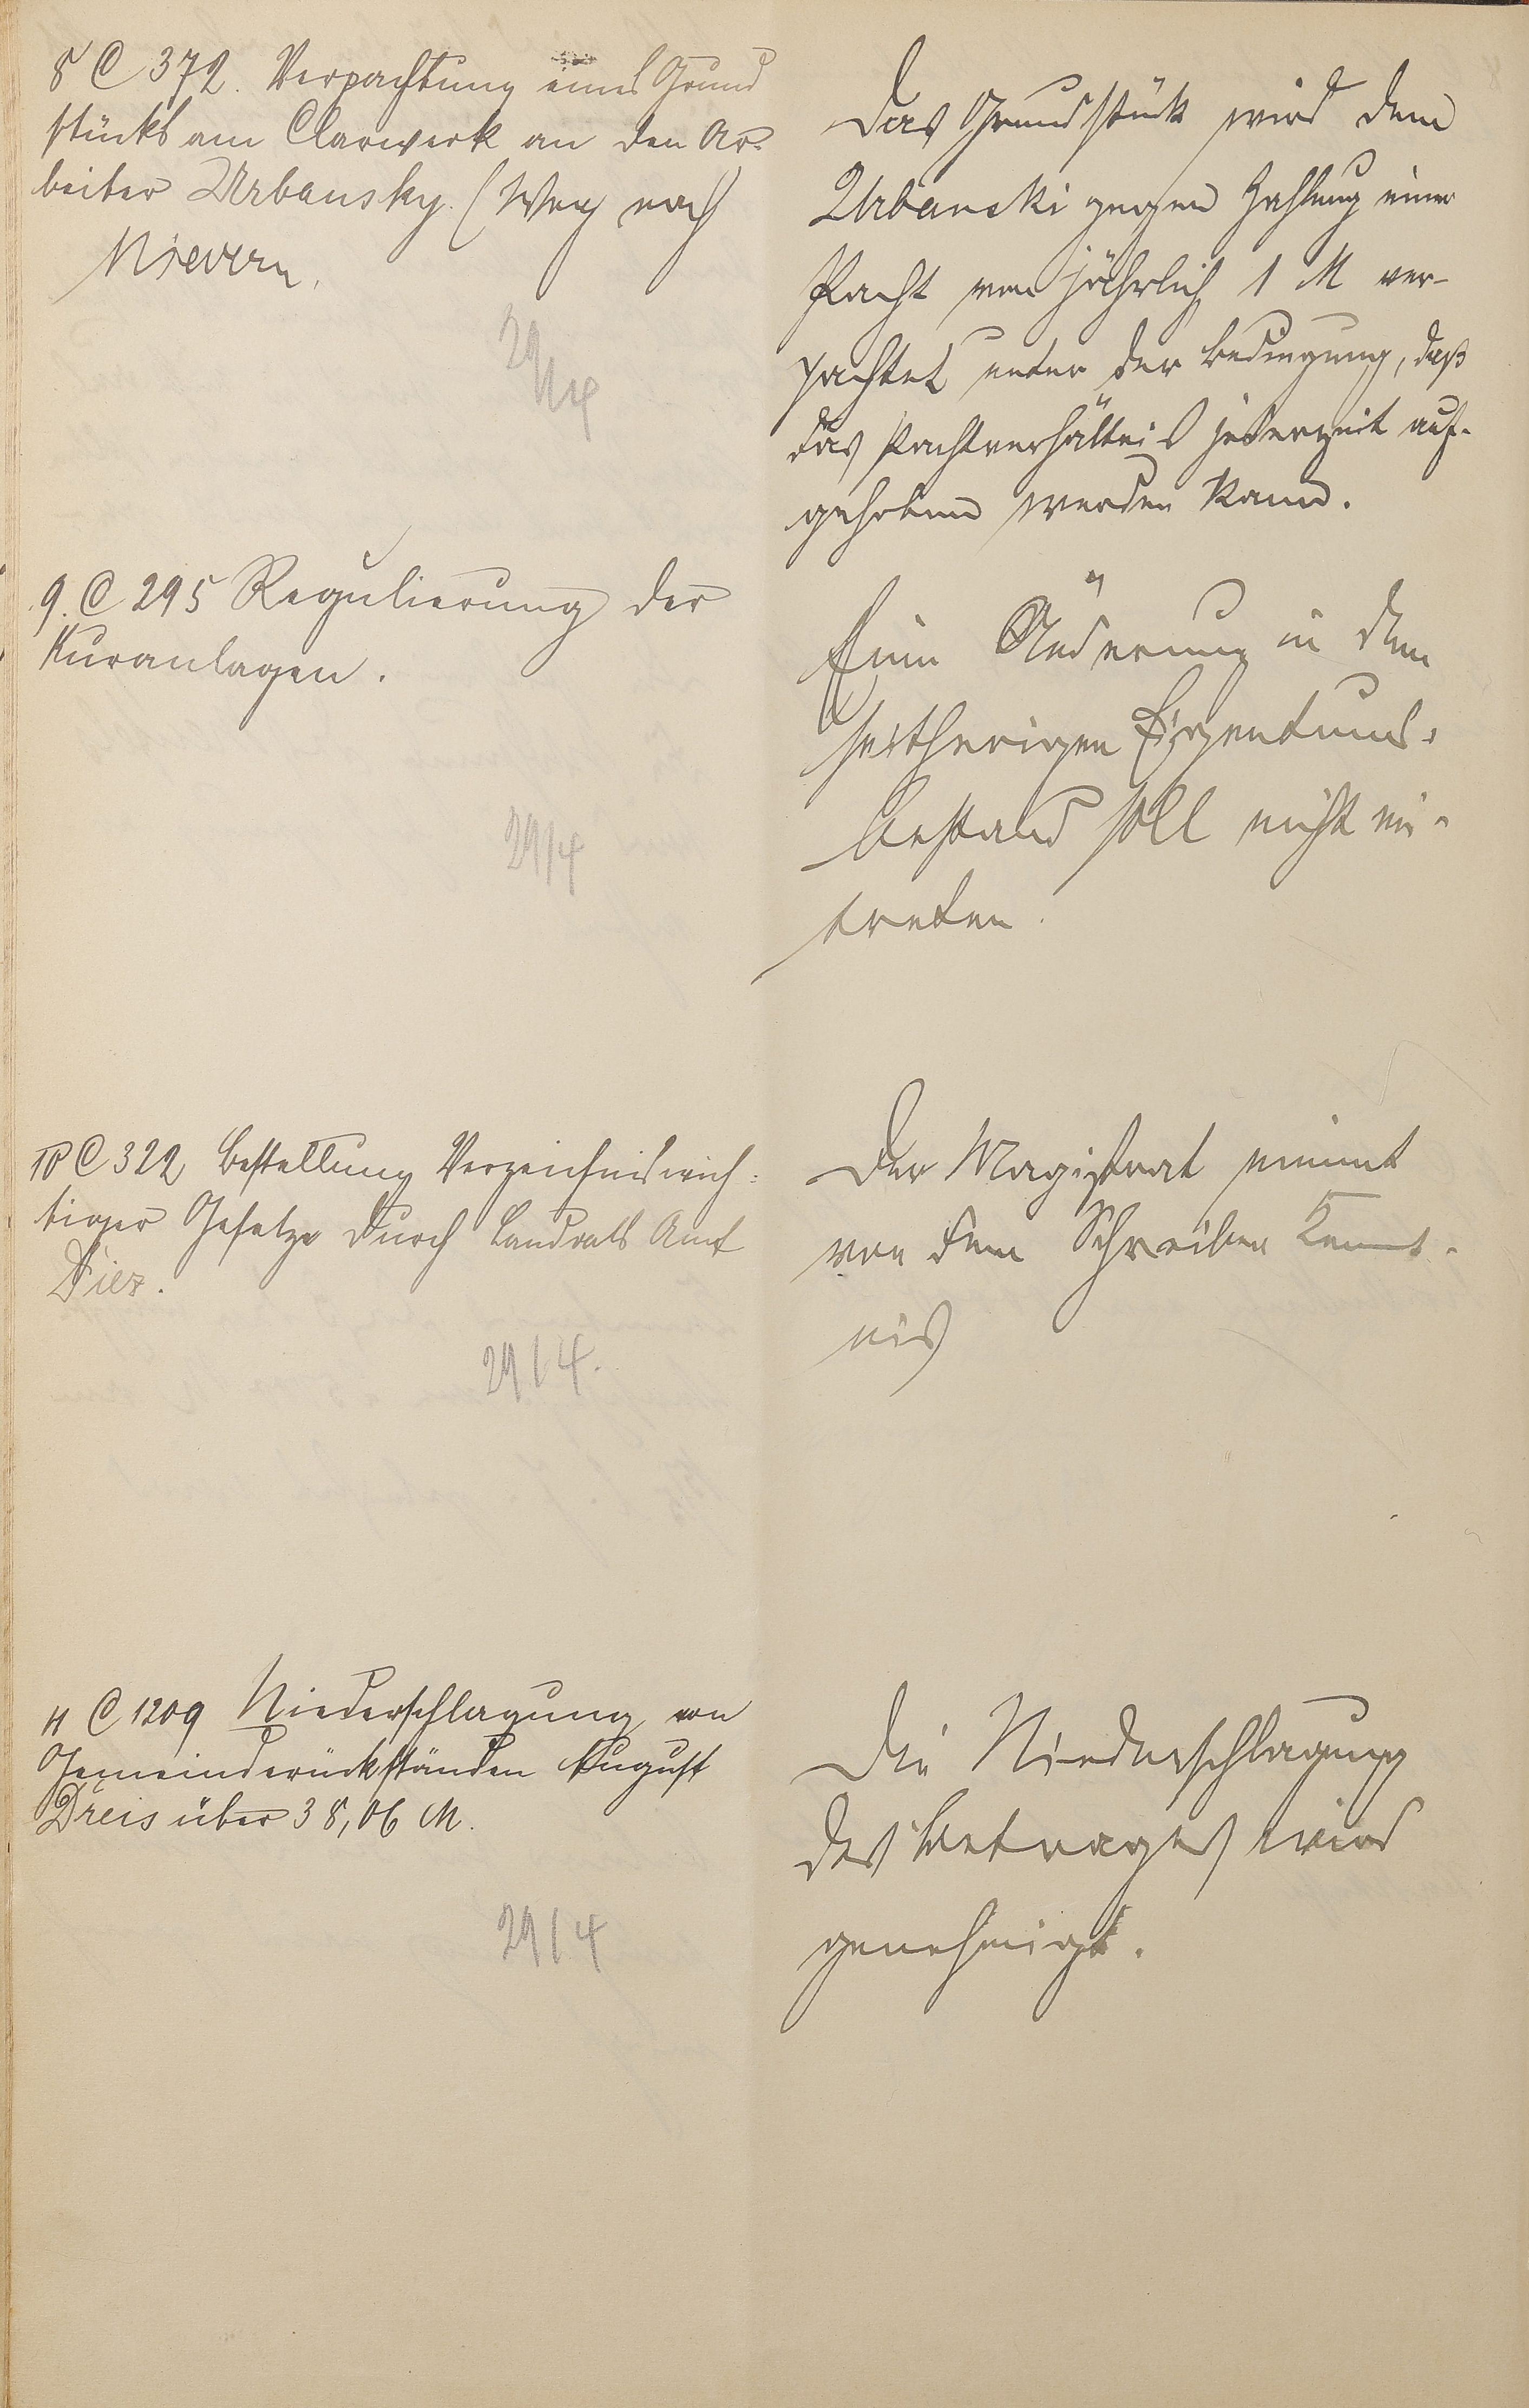 8 C 372. Verpachtung eines Grund
stücks am Clarwerk an den Ar-
beiter Urbansky. (Weg nach
Nievern.
29/4
Das Grundstück wird dem
Urbanski gegen Zahlung einer
Pacht von jährlich 1 M ver-
pachtet unter der Bedingung, daß
das Pachtverhältnis jederzeit auf-
gehoben werden kann.
9. C 295 Regulierung der
Kuranlagen.
29/4
Eine Änderung in dem
seitherigen Eigentums-
bestand soll nicht ein-
treten.
10 C 322 Bestellung Verzeichnis wich-
tiger Gesetze durch Landrats Amt
Diez.
29/4.
Der Magistrat nimmt
von dem Schreiben Kennt-
nis
11 C 1209 Niederschlagung von
Gemeinderückständen August
Dreis über 38,06 M.
29/4
Die Niederschlagung
des Betrages wird
genehmigt.